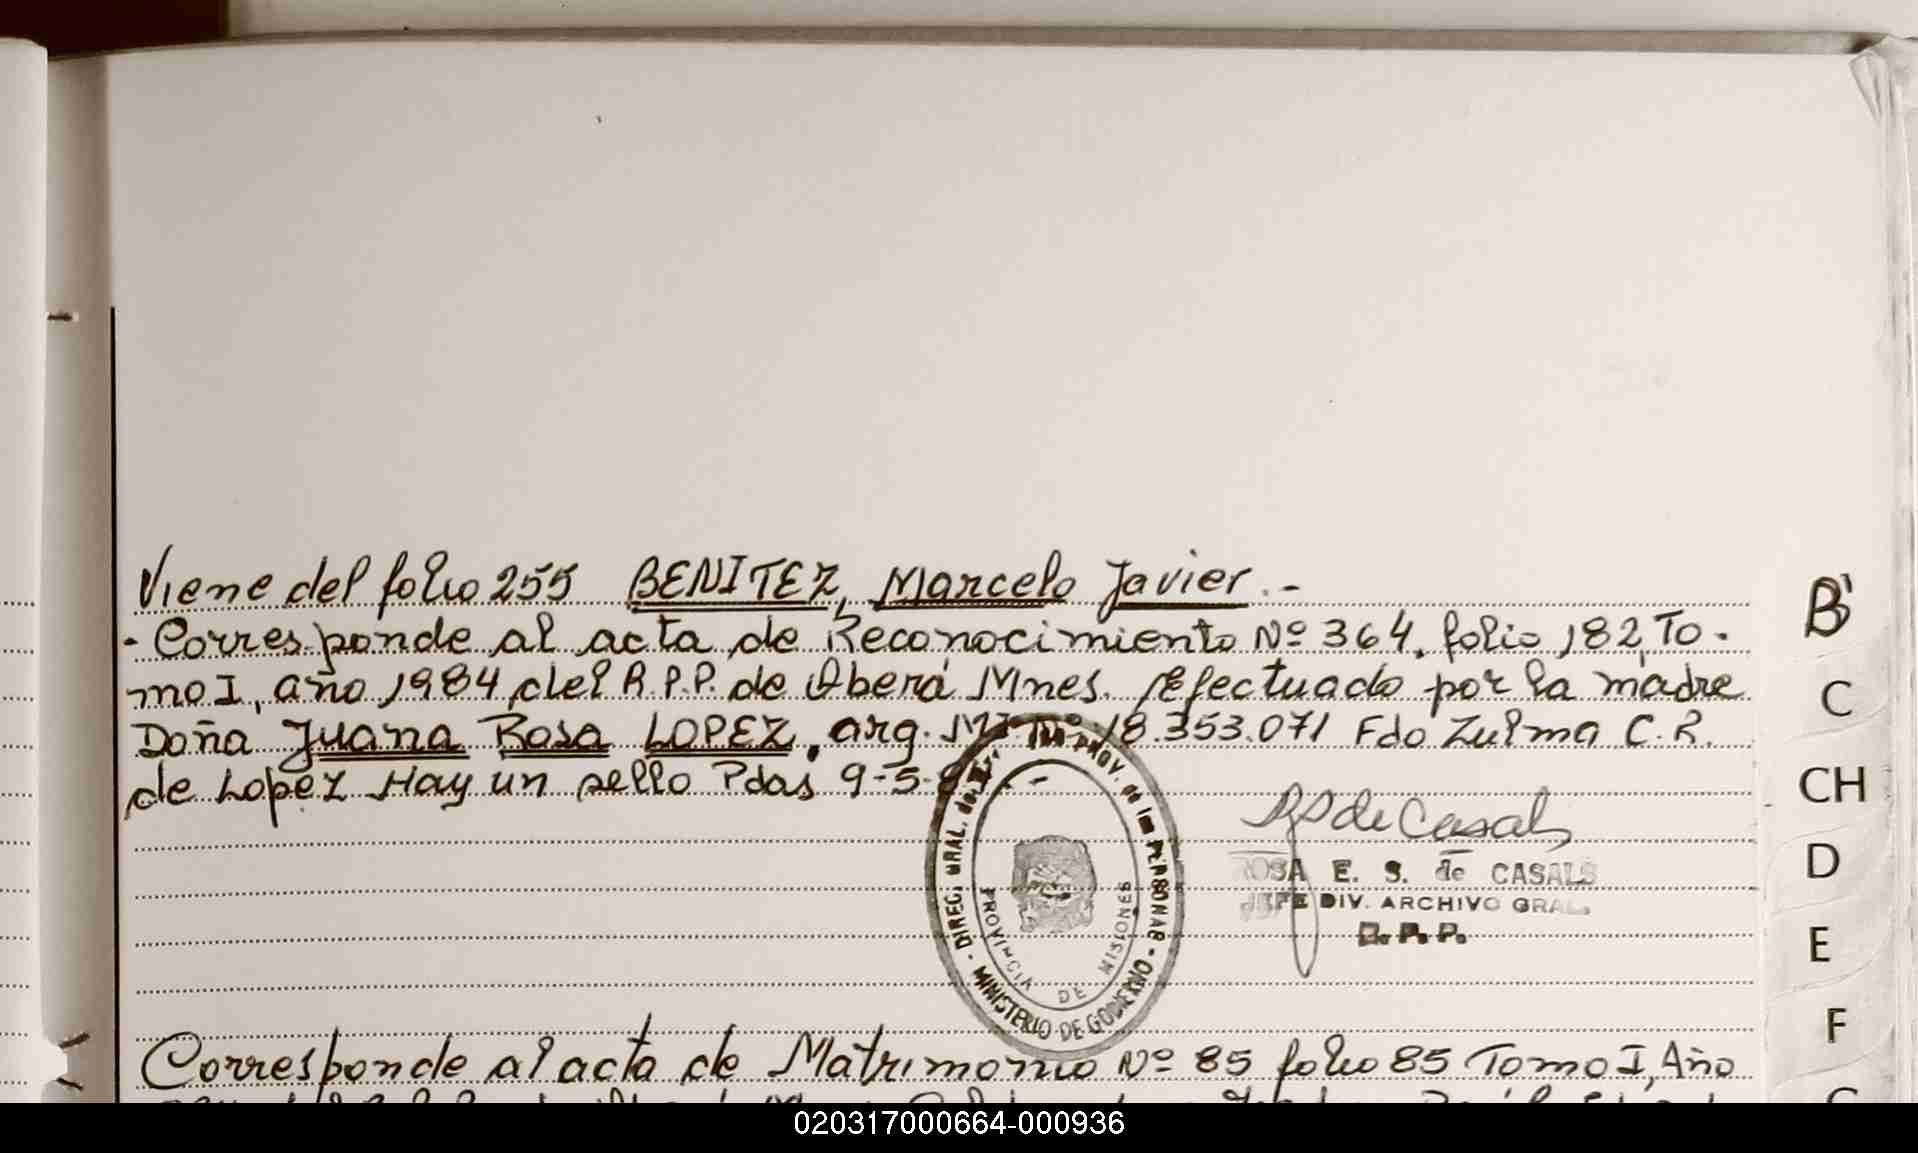 Viene del folio 255 BENITEZ, Marcelo Javier.-
- Corresponde al acta de Reconocimiento Nº 364, folio 182, To-
mo I, año 1984 del R.P.P. de Oberá Mnes. Efectuado por la madre
Doña Juana Rosa LOPEZ, arg. MI Nº 18.353.071 Fdo Zulma C.R.
de Lopez Hay un sello Pdas 9-5-
DIREC. GRAL. del PROV. de las PERSONAS - MINISTERIO DE GOBIERNO -
PROVINCIA DE MISIONES
de Casals
ROSA E. S. de CASALS
JEFE DIV. ARCHIVO GRAL.
R. P. P.
Corresponde al acta de Matrimonio Nº 85 folio 85 Tomo I, Año
B
C
CH
D
E
F
020317000664-000936